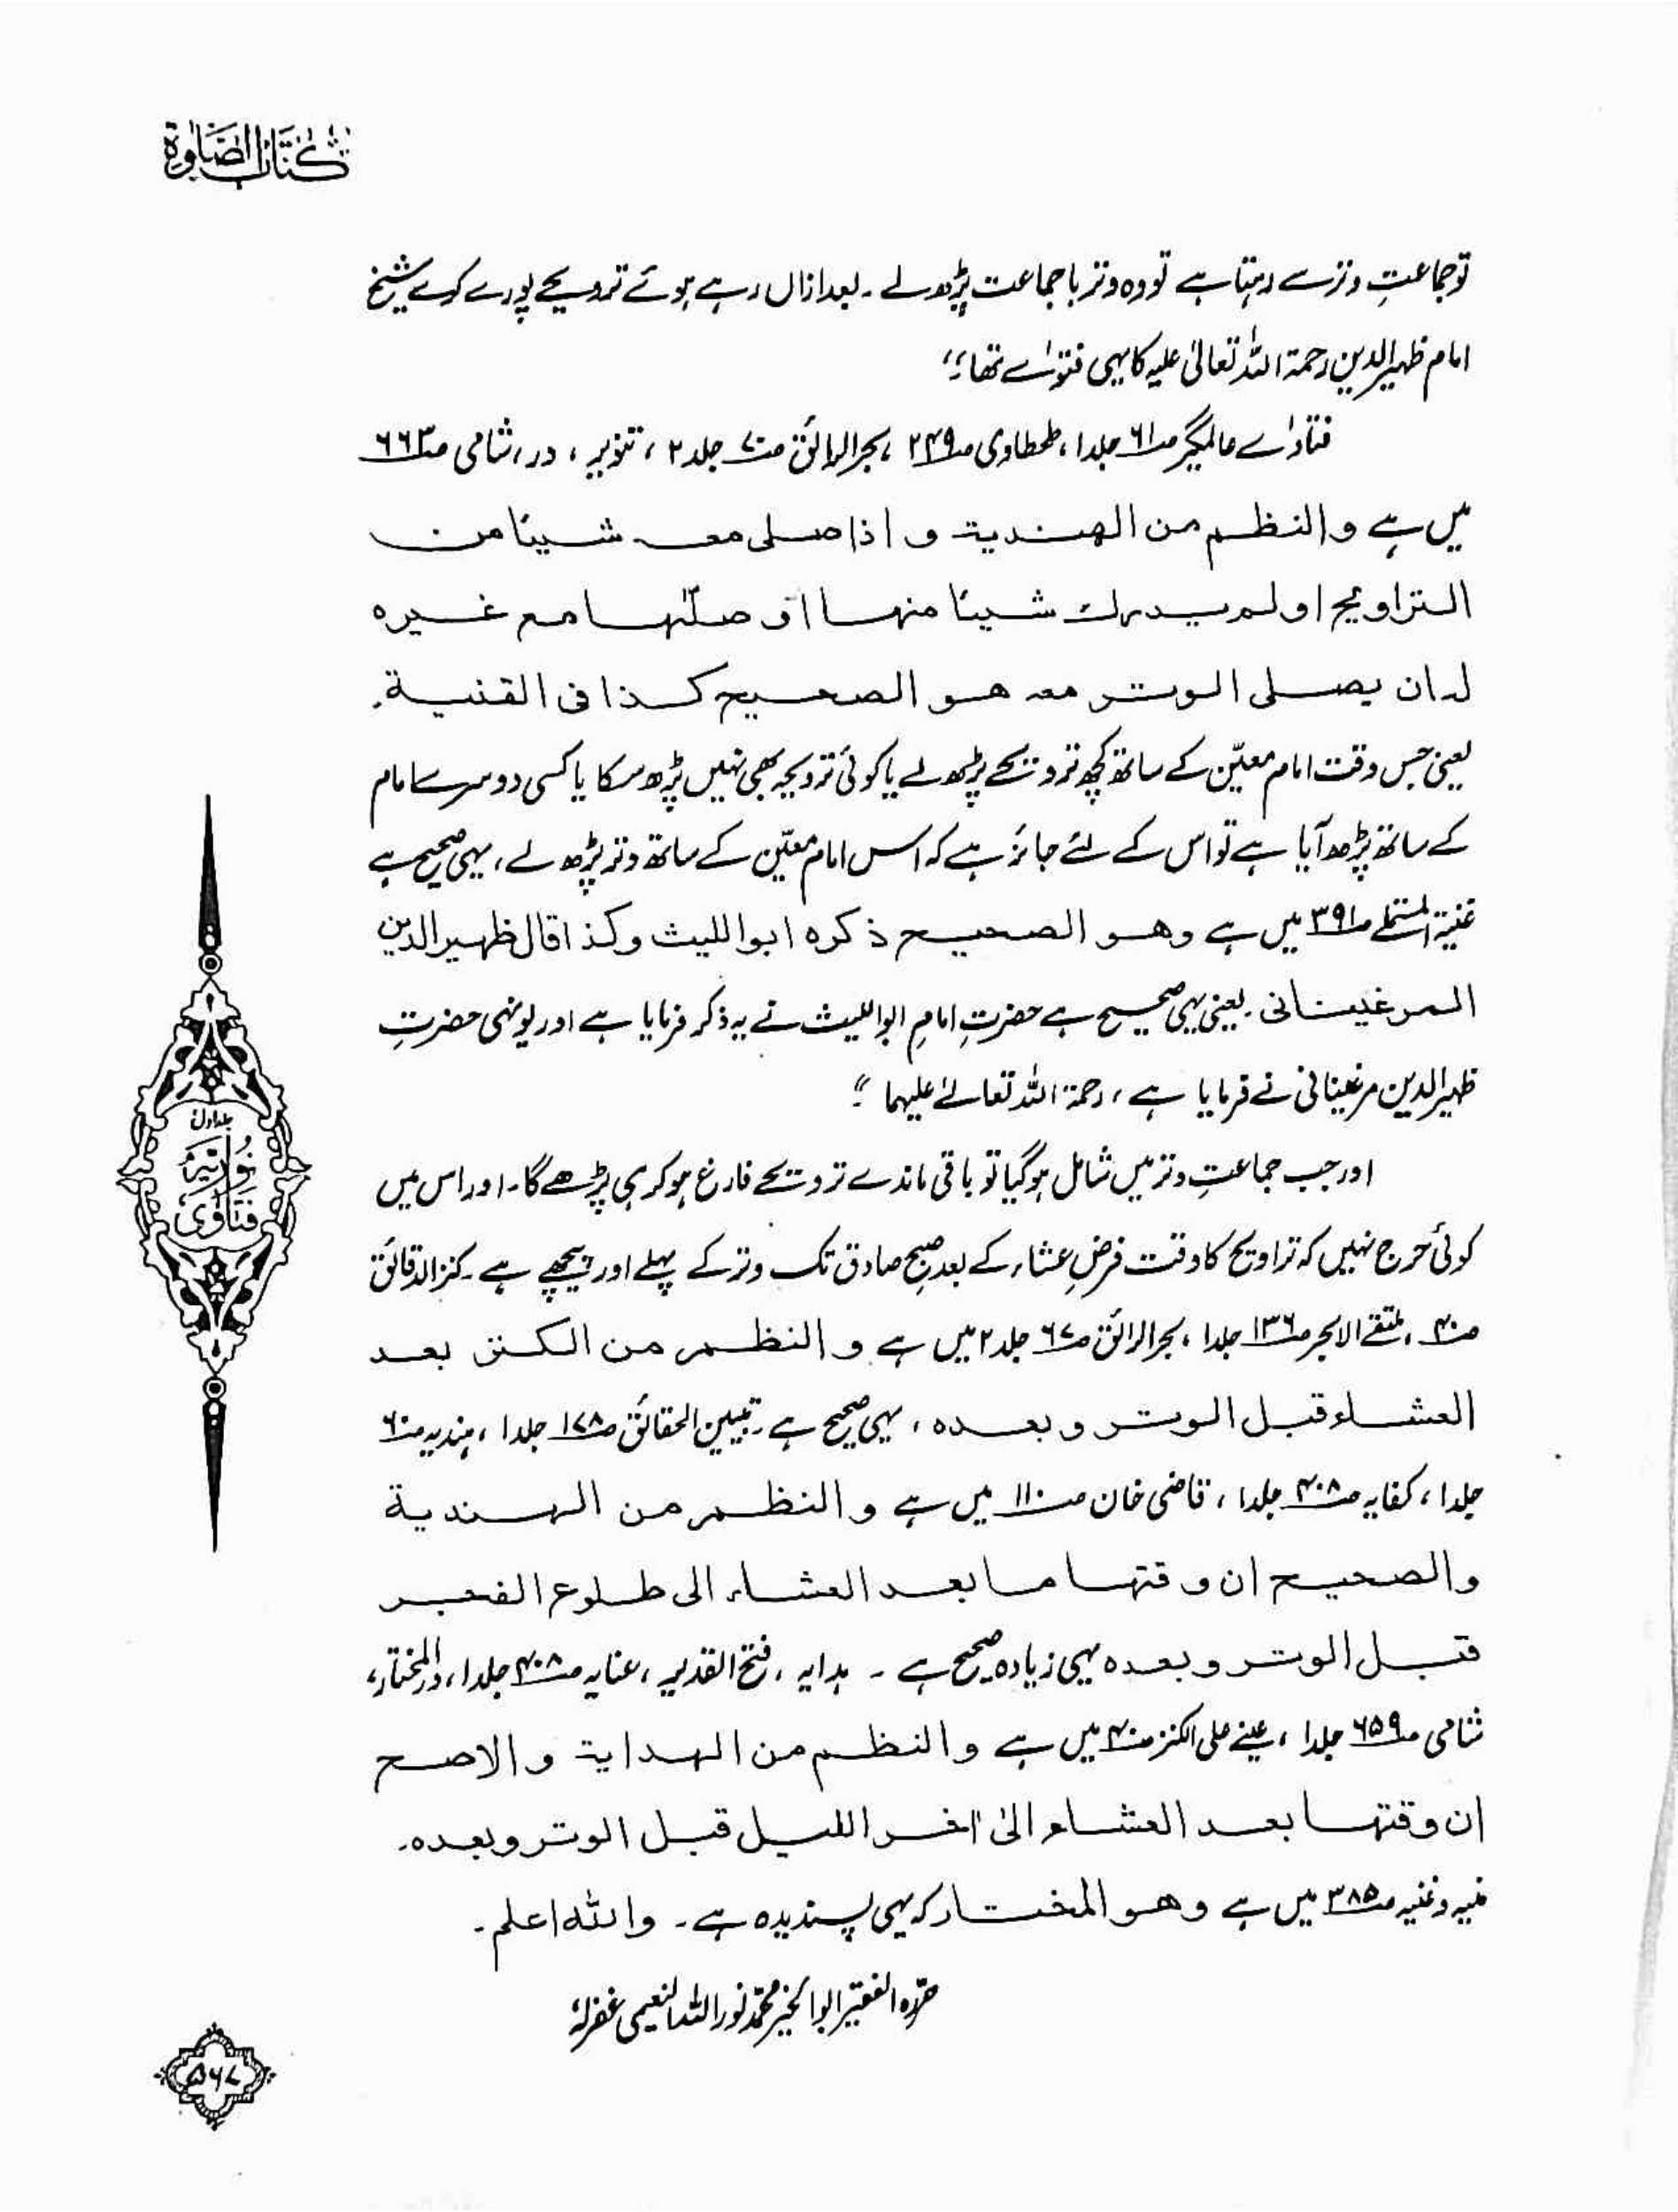 كتاب الصلوة
تو جماعتِ وتر سے رہتا ہے تو وہ وتر با جماعت پڑھ لے ۔ بعد ازاں رہے ہوئے ترویحے پورے کرے شیخ
امام ظہیر الدین رحمۃ اللہ تعالیٰ علیہ کا یہی فتوٰے تھا۔"
فتاوٰے عالمگیر صـ۶۱ جلد۱ ، طحطاوی صـ۲۴۹ ، بحر الرائق صـ۷۰ جلد ۲ ، تنویر ، در ، شامی صـ۶۶۳
میں ہے والنظم من الهندية و اذا صلى معه شيئا من
التراويح او لم يدرك شيئا منها او صلّٰها مع غيره
له ان يصلى الوتر معه هو الصحيح كذا فى القنية.
یعنی جس وقت امام معیّن کے ساتھ کچھ ترویحے پڑھ لے یا کوئی ترویحہ بھی نہیں پڑھ سکا یا کسی دوسرے امام
کے ساتھ پڑھ آیا ہے تو اس کے لئے جائز ہے کہ اس امام معیّن کے ساتھ وتر پڑھ لے ، یہی صحیح ہے
غنیۃ المستملے صـ۳۹۱ میں ہے وهو الصحيح ذكره ابو الليث وكذا قال ظهير الدين
المرغيتانى ۔ یعنی یہی صحیح ہے حضرتِ امامِ ابو اللیث نے یہ ذکر فرمایا ہے اور یونہی حضرتِ
ظہیر الدین مرغینانی نے فرمایا ہے ، رحمۃ اللہ تعالےٰ علیہما ۔"
اور جب جماعتِ وتر میں شامل ہو گیا تو باقی ماندے ترویحے فارغ ہو کر ہی پڑھے گا۔ اور اس میں
کوئی حرج نہیں کہ تراویح کا وقت فرضِ عشاء کے بعد صبحِ صادق تک وتر کے پہلے اور پیچھے ہے ۔ کنز الدقائق
صـ۴۰ ، ملتقے الابحر صـ۱۳۶ جلد۱ ، بحر الرائق صـ۶۷ جلد ۲ میں ہے و النظم من الكنز بعد
العشاء قبل الوتر و بعده ، یہی صحیح ہے ۔ تبیین الحقائق صـ۱۷۸ جلد۱ ، ہندیہ صـ۶۰
جلد۱ ، کفایہ صـ۴۰۸ جلد۱ ، قاضی خان صـ۱۱۰ میں ہے و النظم من الهندية
والصحيح ان وقتها ما بعد العشاء الى طلوع الفجر
قبل الوتر و بعده یہی زیادہ صحیح ہے ۔ ہدایہ ، فتح القدیر ، عنایہ صـ۴۰۸ جلد۱ ، در المختار ،
شامی صـ۶۵۹ جلد۱ ، عینے علی الکنز صـ۴۰ میں ہے والنظم من الهداية و الاصح
ان وقتها بعد العشاء الىٰ اٰخر الليل قبل الوتر وبعده.
منیہ و غنیہ صـ۳۸۵ میں ہے وهو المختار کہ یہی پسندیدہ ہے ۔ والله اعلم ۔
حرّرہ الفقیر ابو الخیر محمّد نور اللہ النعیمی غفرلہٗ
جلد اول
نوریہ
فتاوٰی
۵۶۷